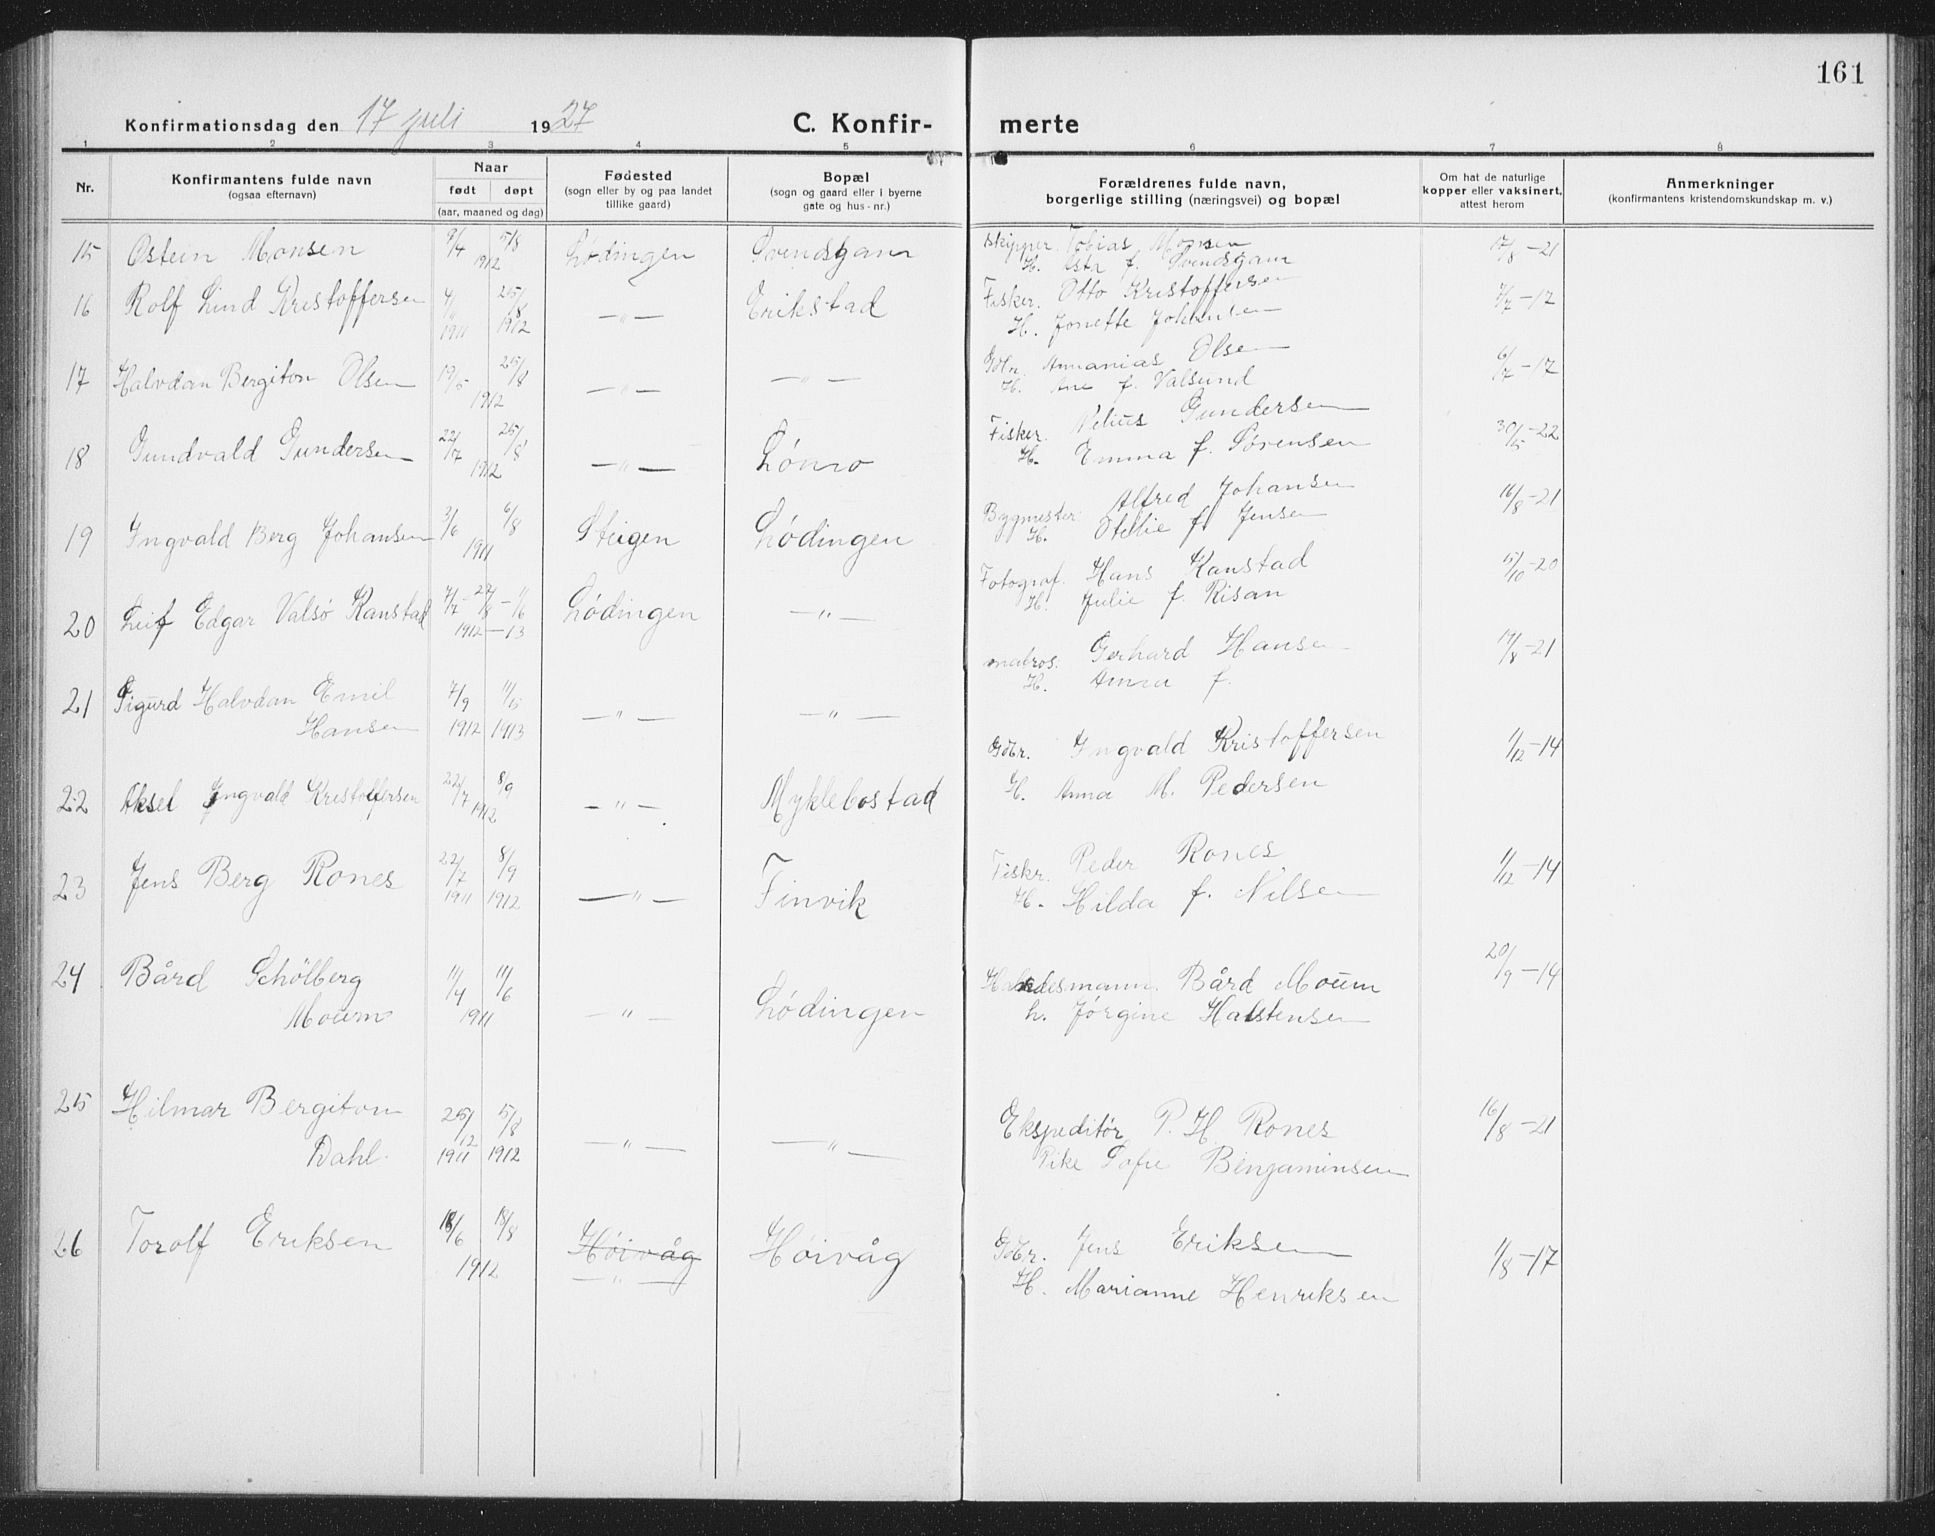 161
Konfirmationsdag den 17 juli 1927 C. Konfir- merte
1 2 3 4 5 6 7 8
Nr. Konfirmantens fulde navn (ogsaa efternavn) Naar født døpt (aar, maaned og dag) Fødested (sogn eller by og paa landet tillike gaard) Bopæl (sogn og gaard eller i byerne gate og hus-nr.) Forældrenes fulde navn, borgerlige stilling (næringsvei) og bopæl Om hat de naturlige kopper eller vaksinert, attest herom Anmerkninger (konfirmantens kristendomskundskap m. v.)
15 Østein Monsen 9/4 5/8 1912 Lødingen Svendsgam Skipper. Tobias Monsen 17/8-21
H. f. Svendsgam
16 Rolf Lind Kristoffersen 25/8 1911 1912 —"— Erikstad Fisker. Otto Kristoffersen 7/7-17
H. Jonette Johansen
17 Halvdan Bergiton Olsen 19/5 25/8 1912 —"— —"— Gbr. Annanias Olsen 6/7-17
H. Ane f. Valsund
18 Gundvald Gundersen 22/7 25/8 1912 —"— Fisker. Nelius Gundersen 30/5-22
H. Emma f. Sørensen
19 Ingvald Berg Johansen 3/6 6/8 1911 Steigen Lødingen Bygmester Alfred Johansen 16/8-21
H. Otelie f. Jensen
20 Leif Edgar Valsø Kanstad 7/7-22/8-1/6 1912-13 Lødingen —"— Fotograf. Hans Kanstad 15/10-20
H. Julie f. Risan
21 Sigurd Halvdan Emil Hansen 7/9 1912 1913 —"— —"— matros. Gerhard Hansen 19/8-21
H. Anna f.
22 Aksel Ingvald Kristoffersen 22/7 8/9 1912 —"— Myklebostad Gbr. Ingvald Kristoffersen 1/12-14
H. Anna M. Pedersen
23 Jens Berg Rones 22/7 8/9 1911 1912 —"— Finvik Fiskr. Peder Rones 1/12-14
H. Hilda f. Nilsen
24 Bård Schölberg Moum 11/4 11/6 1911 —"— Lødingen Handesmann. Bård Moum 20/9-14
h. Jørgine Halstensen
25 Hilmar Bergiton Dahl. 25/12 5/8 1911 1912 —"— —"— Ekspeditør P. H. Rones 16/8-21
Pike Sofie Benjaminsen
26 Torolf Eriksen 18/6 18/8 1912 Høivåg —"— Høivåg Gbr. Jens Eriksen 1/8-17
H. Marianne Henriksen